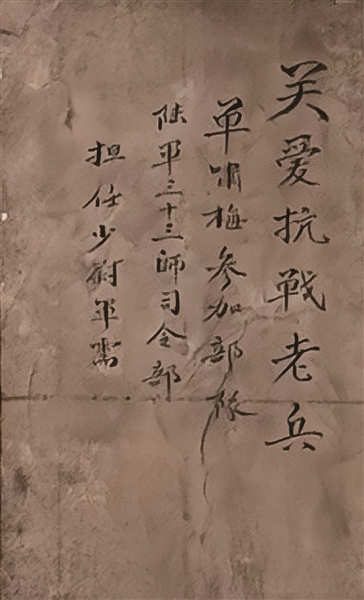 关愛抗戦老兵
单啸梅参加部隊
陆军三十三師司令部
担任少尉军需